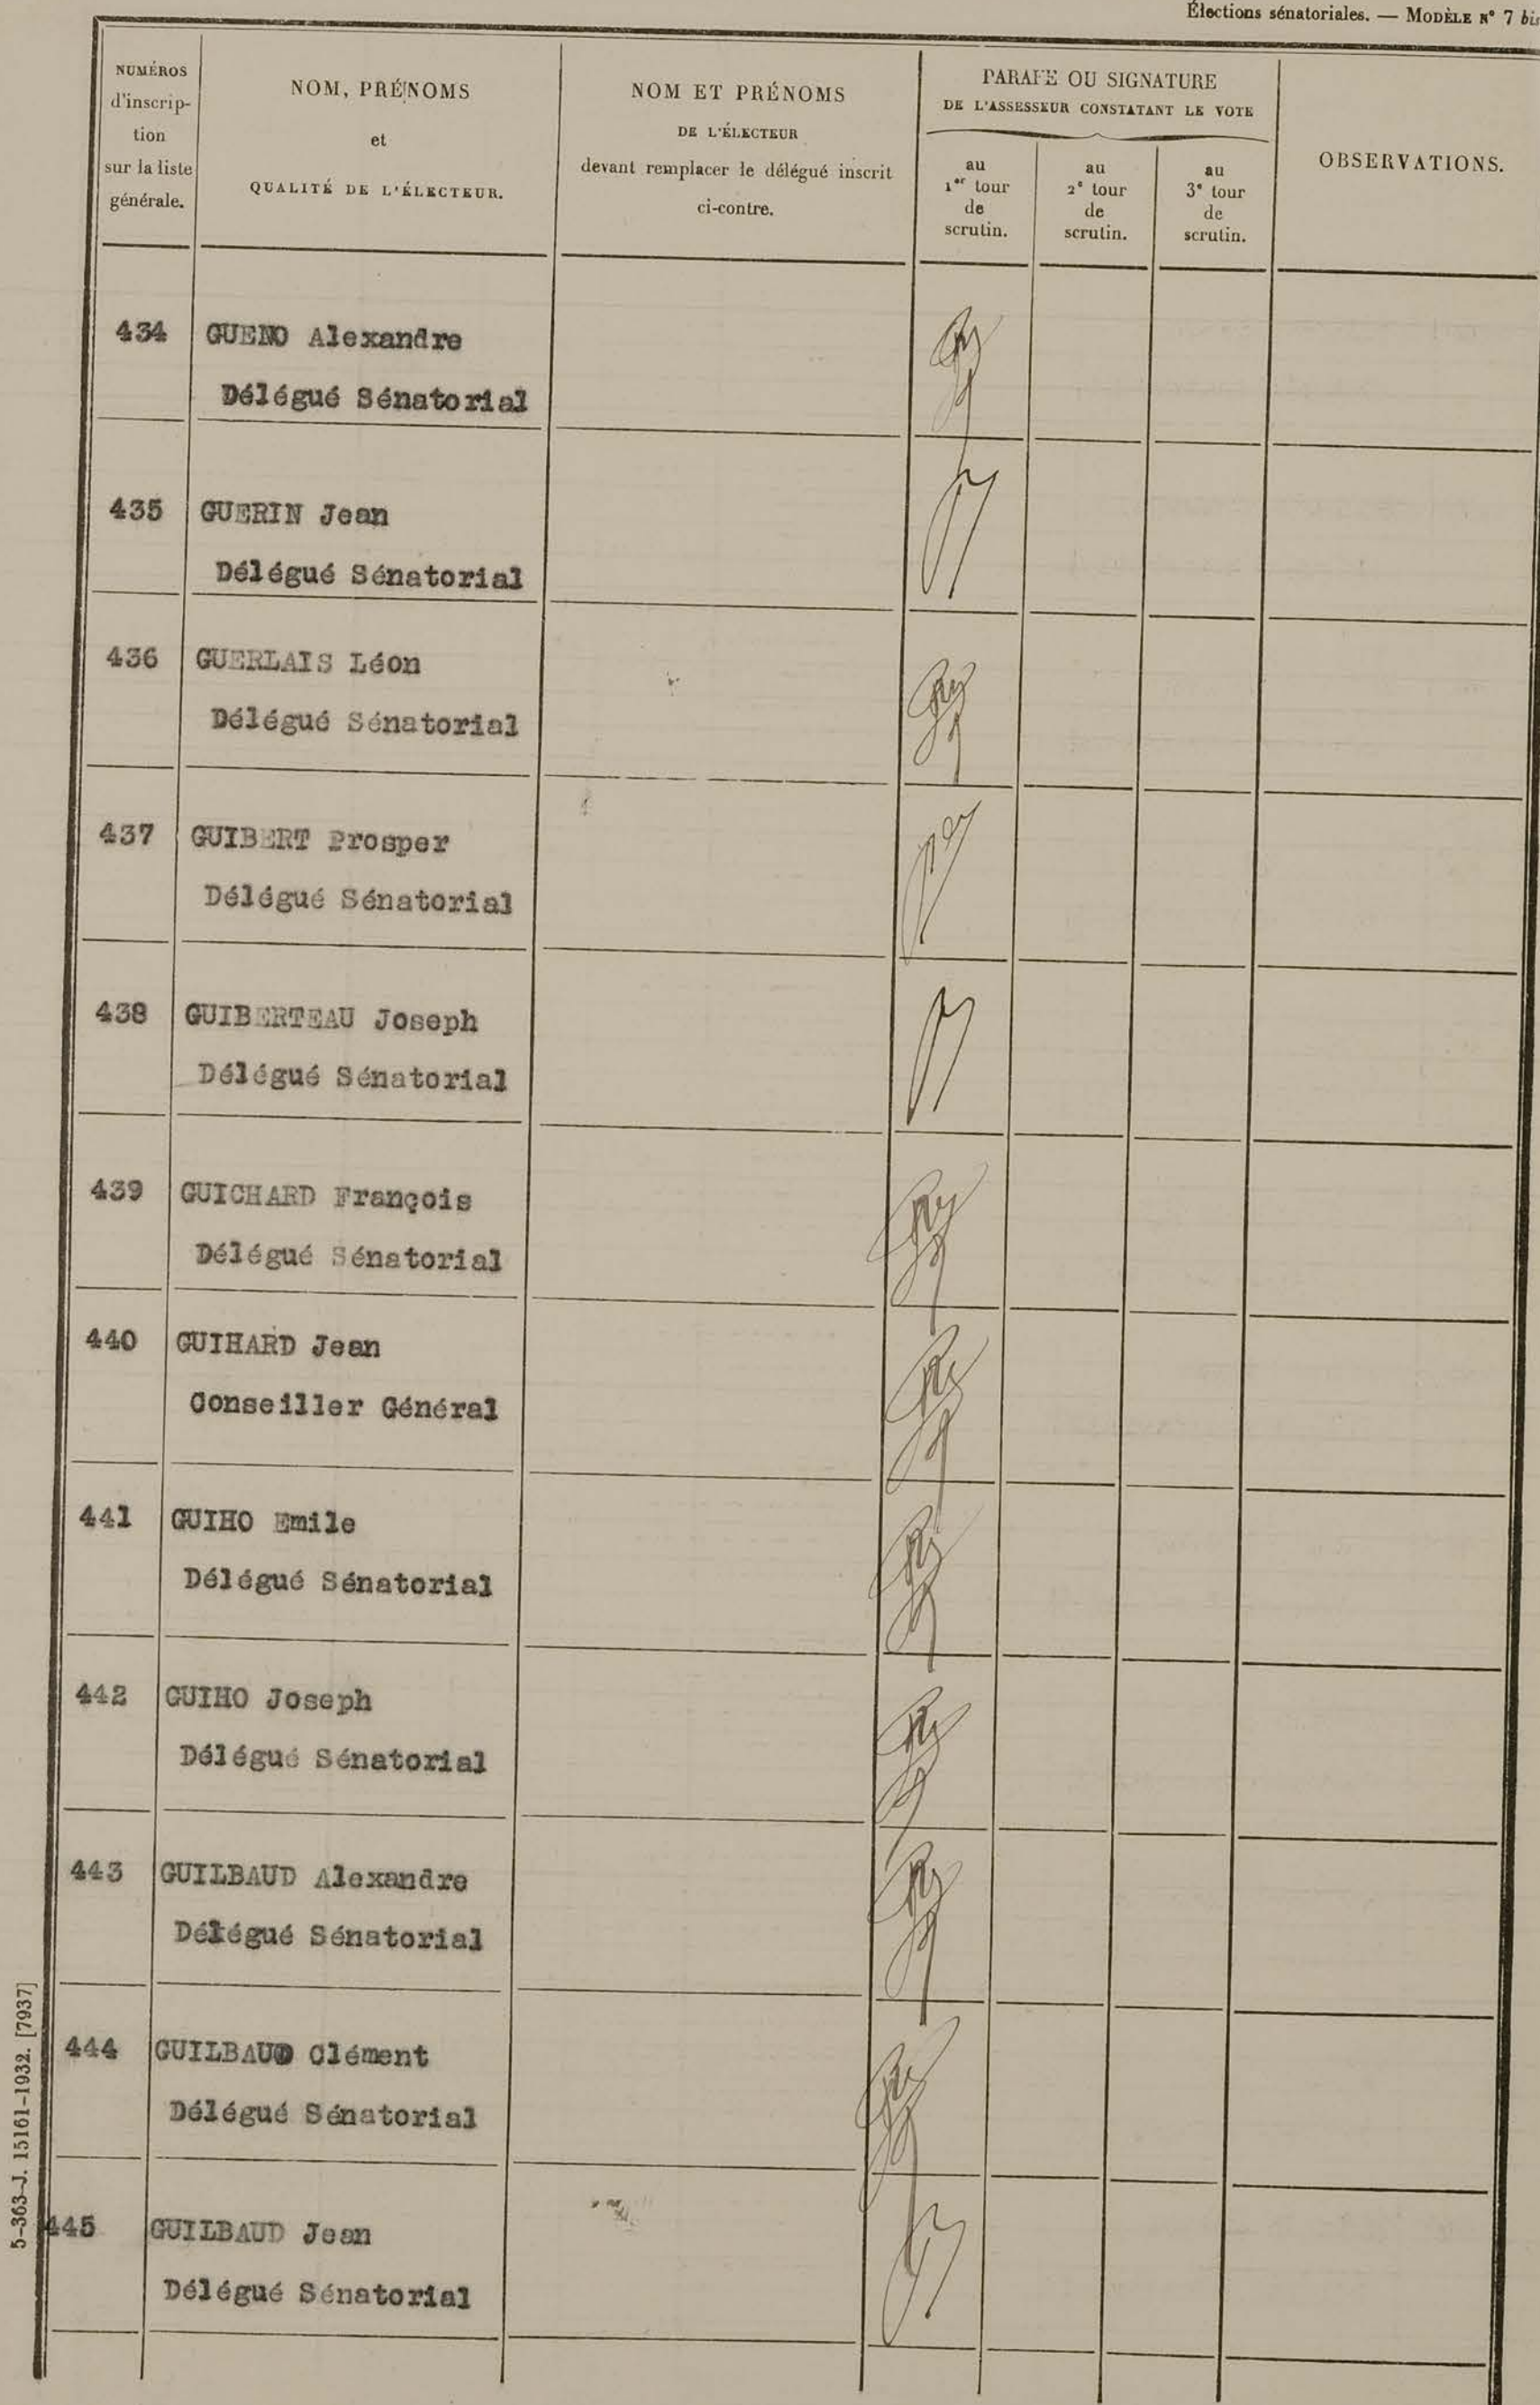 Élections sénatoriales. — MODÈLE N° 7 bis
NUMÉROS
d'inscrip-
tion
sur la liste
générale.
NOM, PRÉNOMS
et
QUALITÉ DE L'ÉLECTEUR.
NOM ET PRÉNOMS
DE L'ÉLECTEUR
devant remplacer le délégué inscrit
ci-contre.
PARAFE OU SIGNATURE
DE L'ASSESSEUR CONSTATANT LE VOTE
au
1er tour
de
scrutin.
au
2e tour
de
scrutin.
au
3e tour
de
scrutin.
OBSERVATIONS.
434 GUENO Alexandre
Délégué Sénatorial
435 GUERIN Jean
Délégué Sénatorial
436 GUERLAIS Léon
Délégué Sénatorial
437 GUIBERT Prosper
Délégué Sénatorial
438 GUIBERTEAU Joseph
Délégué Sénatorial
439 GUICHARD François
Délégué Sénatorial
440 GUIHARD Jean
Conseiller Général
441 GUIHO Emile
Délégué Sénatorial
442 GUIHO Joseph
Délégué Sénatorial
443 GUILBAUD Alexandre
Délégué Sénatorial
444 GUILBAUD Clément
Délégué Sénatorial
445 GUILBAUD Jean
Délégué Sénatorial
5-363-J. 15161-1932. [7937]